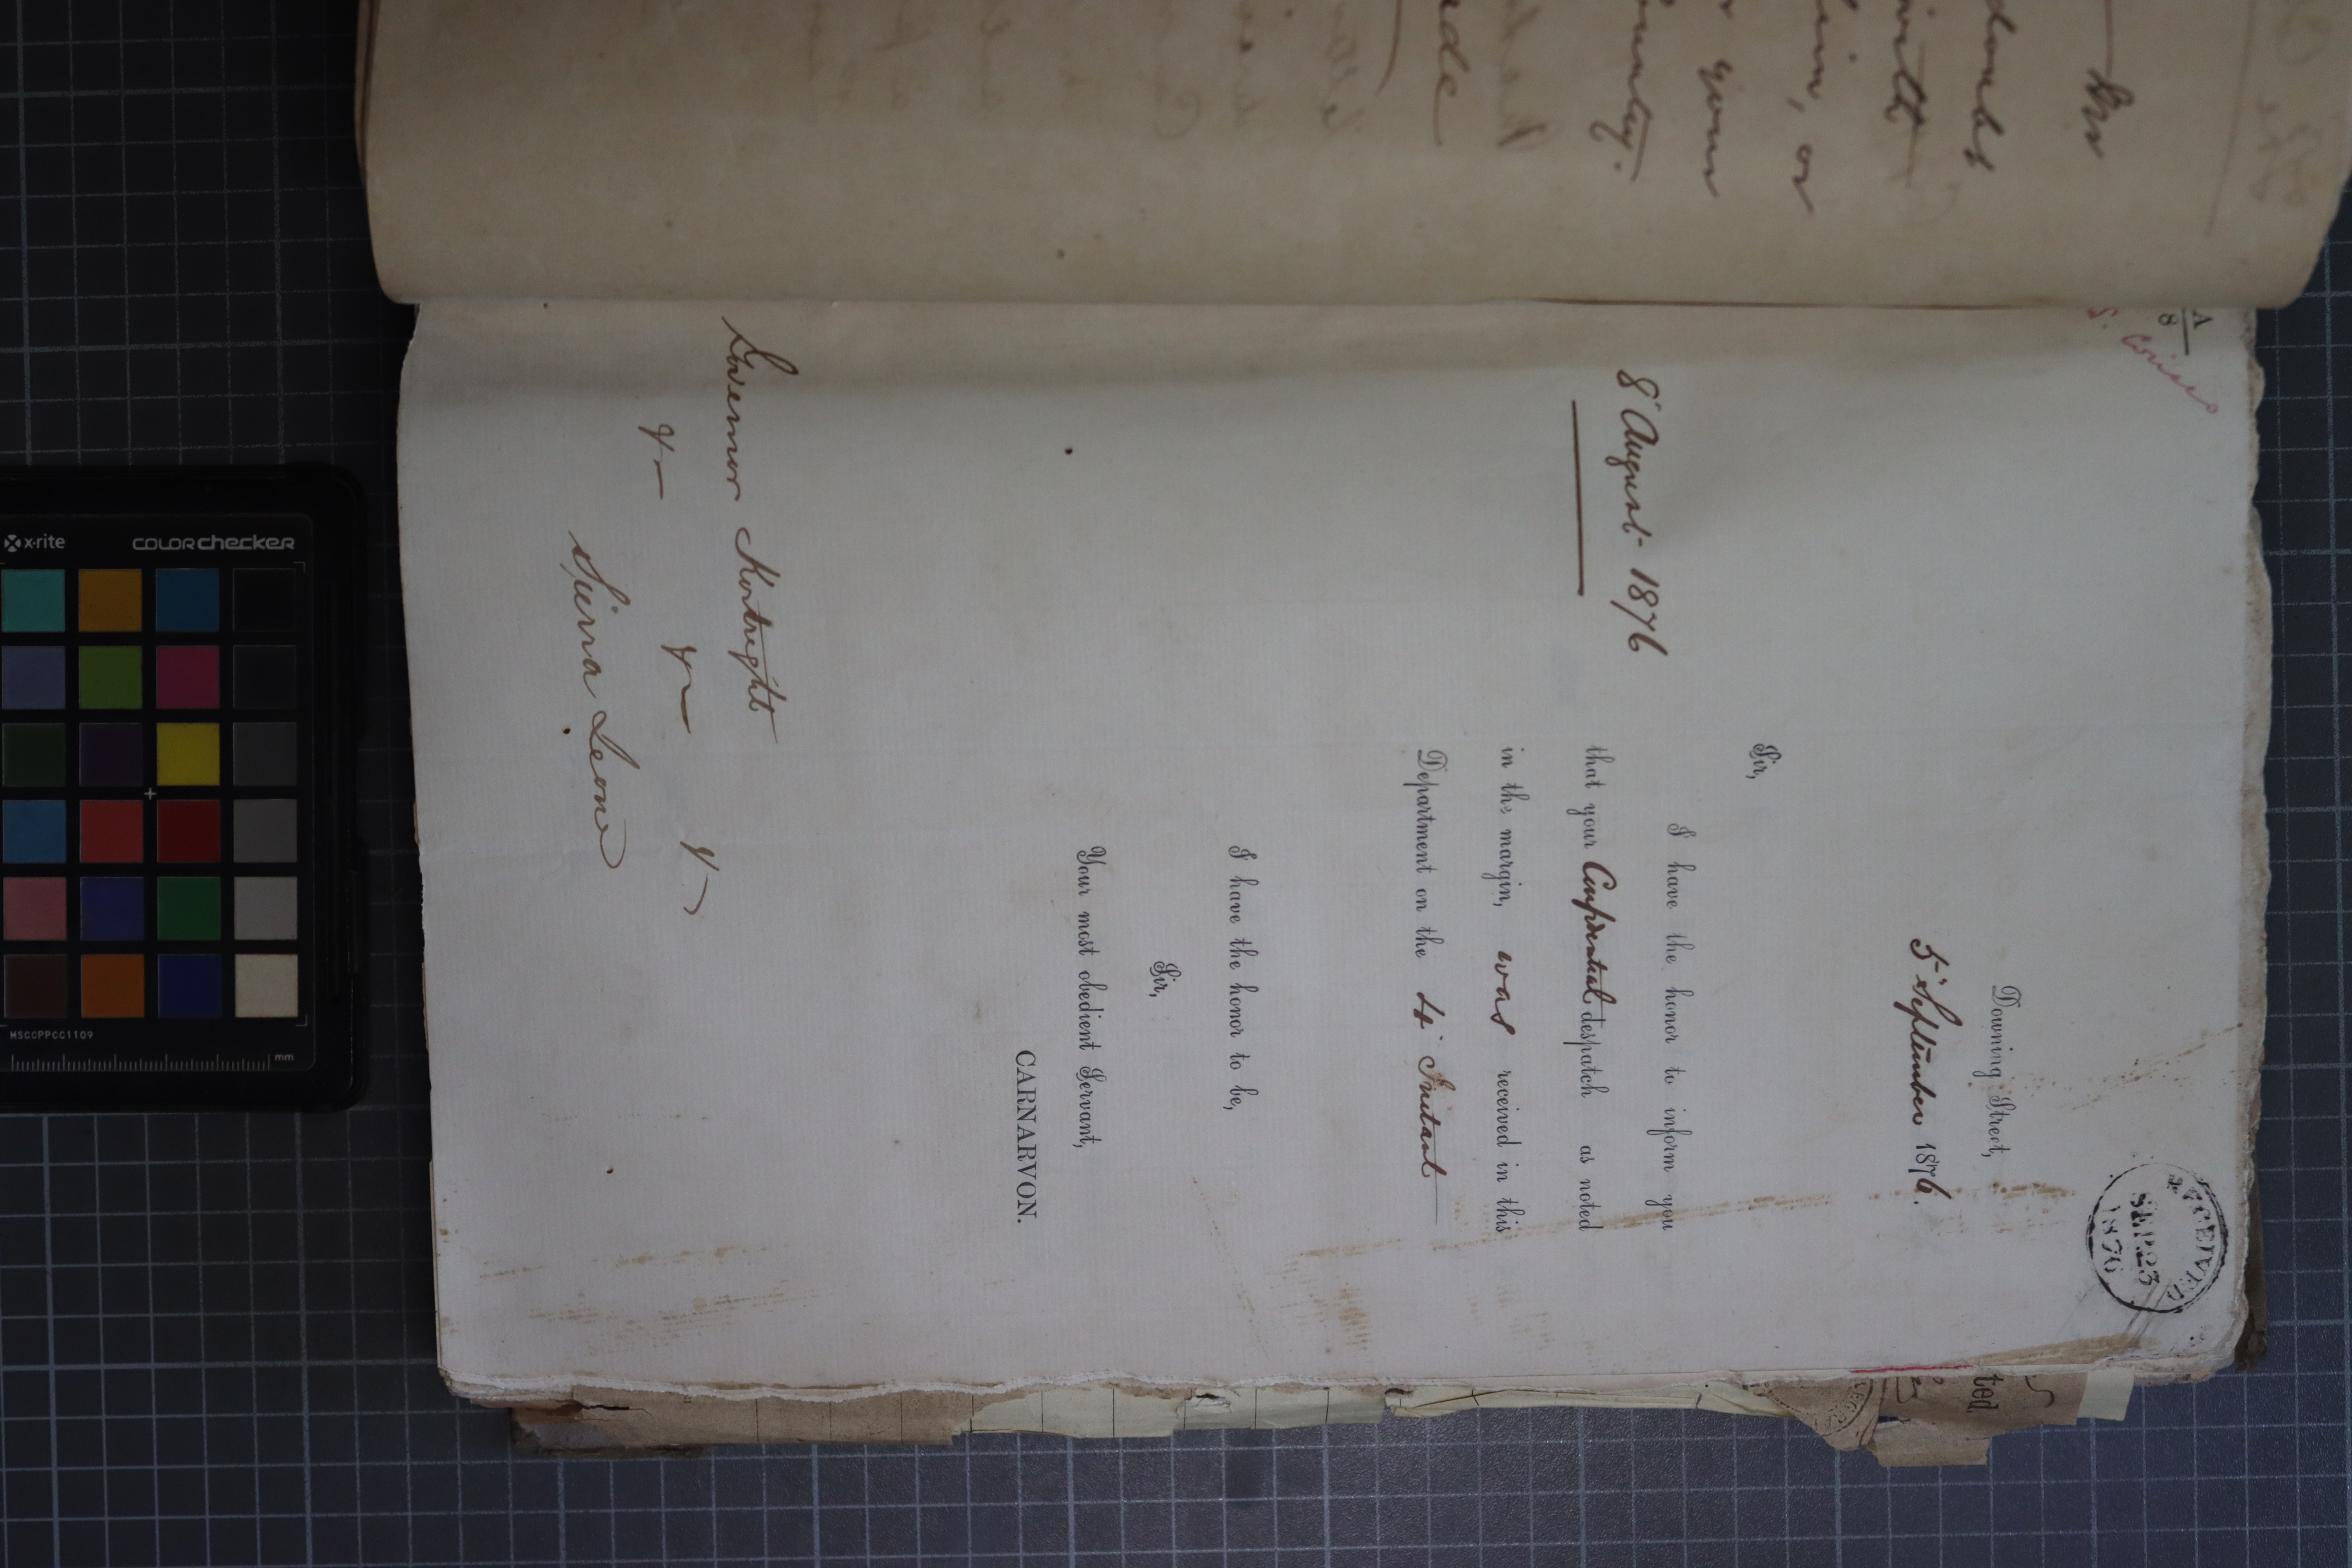 A
8
RECEIVED
SEP. 23
1876
Downing Street,
5' September 1876.
Sir,
8' August 1876
I have the honor to inform you
that your Confidential despatch as noted
in the margin, was received in this
Department on the 4' Instant
I have the honor to be,
Sir,
Your most obedient Servant,
CARNARVON.
Governor Kortright
Sierra Leone
doubts
with
your
ted,
x-rite
COLORchecker
MSCCPPCC1109
mm